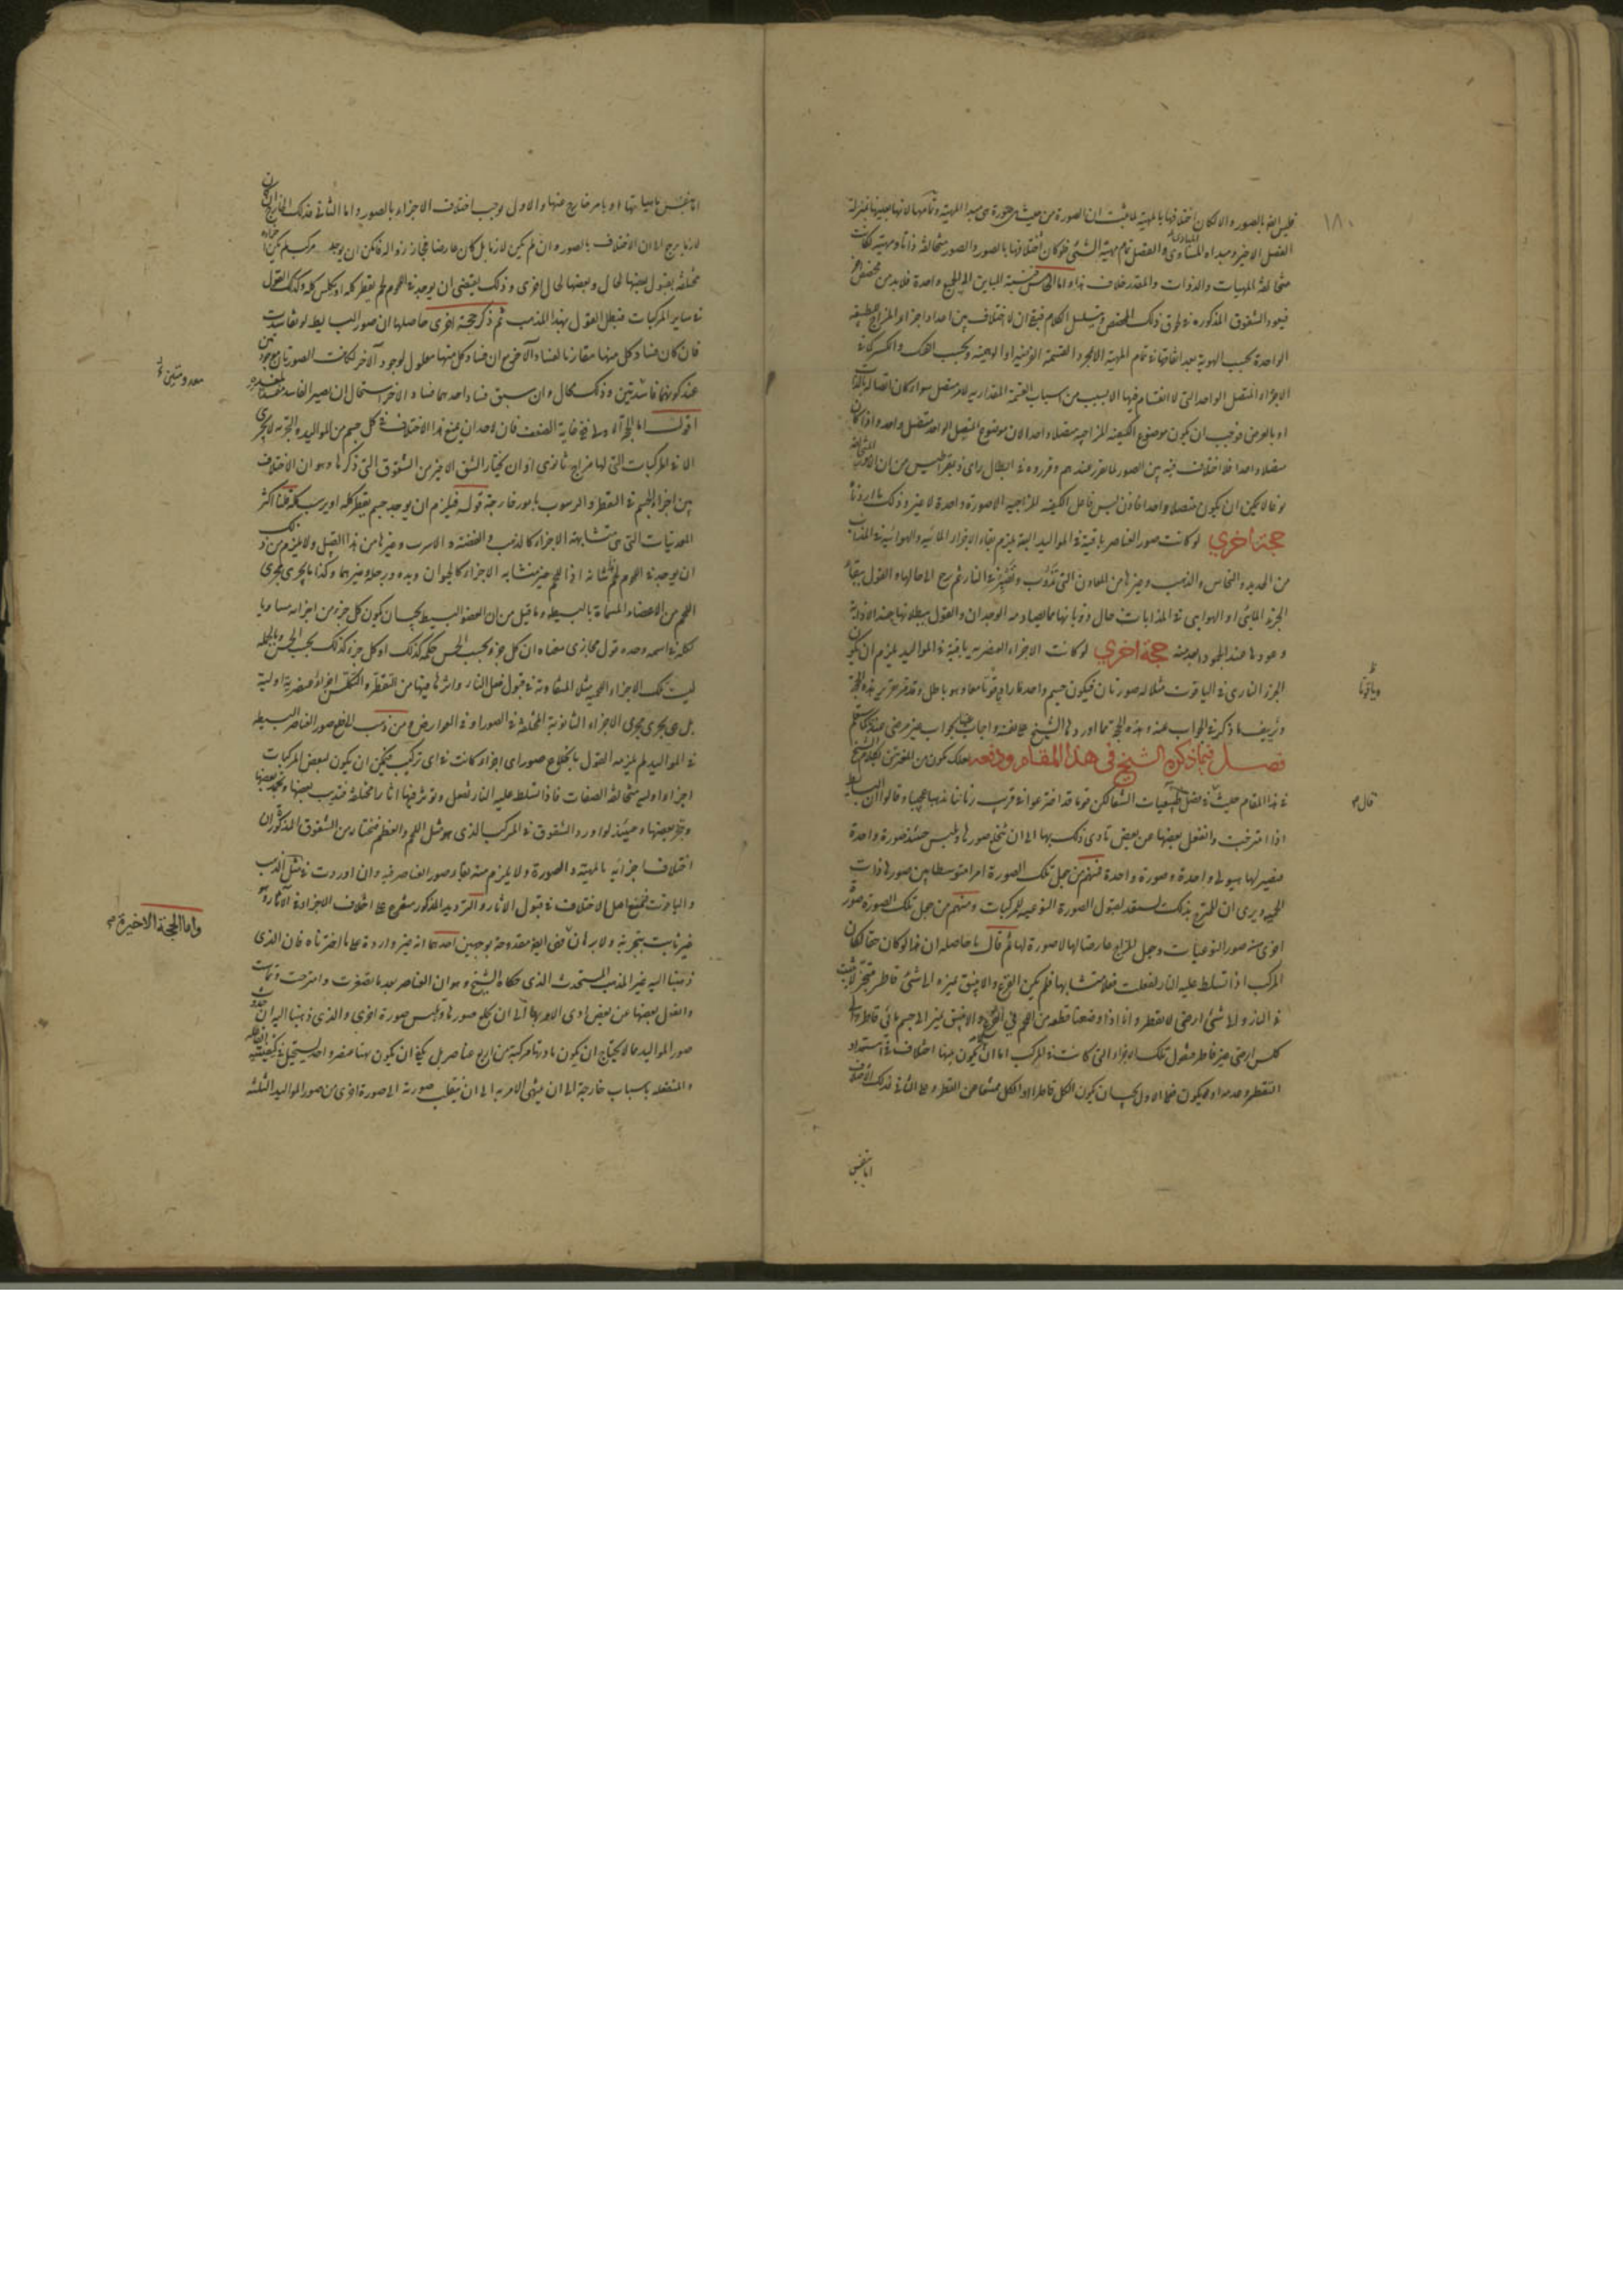 ١٨٠
فليس الا بالصور والا لكان اختلافها بالمهية لما ثبت ان الصورة من حيث هي صورة هي مبدا المهية وتمامها لانها بعينها بمنزلة
الفصل الاخير ومبداه المساوى والفصل تمام مهية الشئ فلو كان اختلافها بالصور والصور متخالفة ذاتا ومهية لكانت
متخالفة المهيات والذوات والمقدر خلاف هذا واما الخامس فنسبة المباين الى الجميع واحدة فلا بد من مخصص
فيعود الشقوق المذكورة في لحوق ذلك المخصص ويتسلسل الكلام فبقي ان لا اختلاف بين اعداد اجزاء المزاج
الواحدة بحسب الهوية بعد اتفاقها في تمام المهية الا بمجرد القسمة الفرضية او الوهمية وبحسب الفك والكسر كما في
الاجزاء المتصل الواحد التي لا انقسام فيها الا بسبب من اسباب القسمة المقدارية للامر متصل سواء كان اتصاله بالذات
او بالعرض فوجب ان يكون موضوع الكيفية المزاجية متصلا واحدا لان موضوع المتصل الواحد متصل واحد واذا كان
متصلا واحدا فلا اختلاف فيه بين الصور لما تقرر عندهم وقرروه في ابطال راى ذيمقراطيس من ان
نوعا لا يمكن ان يكون متصلا واحدا فاذن ليس فاعل الكيفية المزاجية الا صورة واحدة لا غير وذلك ما اردناه
حجة اخرى لو كانت صور العناصر باقية في المواليد البتة يلزم بقاء الاجزاء المائية والهوائية في المذاب
من الحديد والنحاس والذهب وغيرها من المعادن التي تذوب وتصير في النار ثم ترجع الى حالها والقول ببقاء
الجزء المائي او الهوائي في المذابات حال ذوبانها مما يصادمه الوجدان والقول ببطلانها عند الاذابة
وعودها عند الجمود ابعد منه حجة اخرى لو كانت الاجزاء العنصرية باقية في المواليد يلزم ان يكون
الجزء الناري في الياقوت مثلا له صورتان فيكون جسم واحد نارا وياقوتا معا وهو باطل وقد مر تقرير هذه الحجة
وياقوتا
وتزييف ما ذكر في الجواب عنه وهذه الحجة مما اوردها الشيخ على نفسه واجاب عنها بجواب غير مرضى عندنا
فصل فيما ذكره الشيخ في هذا المقام ودفعه لعلك تكون من المغترين بكلام الشيخ
في هذا المقام حيث قال في فصل من طبيعيات الشفا لكن قوما قد اخترعوا في قرب زماننا مذهبا عجيبا وقالوا ان البسايط
قال
اذا امتزجت وانفعل بعضها من بعض تادى ذلك بها الى ان تخلع صورها وتلبس حينئذ صورة واحدة
فيصير لها هيولى واحدة وصورة واحدة فمنهم من جعل تلك الصورة امرا متوسطا بين صورها ذات
الحمية ويرى ان الممتزج بذلك يستعد لقبول الصورة النوعية للمركبات ومنهم من جعل تلك الصورة صورة
اخرى من صور النوعيات وجعل المزاج عارضا لها لا صورة لها ثم قال ما حاصله ان هذا لو كان حقا لكان
المركب اذا تسلط عليه النار لفعلت فعلا متشابها فلم يكن القرع والانبيق تميزه الى شئ قاطر متبخر لا يثبت
في النار ولا شئ ارضى لا يقطر وانا اذا وضعنا قطعة من اللحم في القرع والانبيق تميز الى جسم مائي قاطر والى
كلس ارضى غير قاطر فنقول تلك الاجزاء التي كانت في المركب اما ان يكون بينها اختلاف في استعداد
التقطر وعدمه او لا يكون فعلى الاول يجب ان يكون الكل قاطرا او الكل ممتنعا عن القطر وعلى الثاني فذلك الاختلاف
اما بنفس
اما بنفس ماهياتها او بامر خارج عنها والاول يوجب اختلاف الاجزاء بالصور واما الثاني فذلك الخارج ان كان
لازما يرجع الى ان الاختلاف بالصور وان لم يكن لازما بل كان عارضا فجاز زواله فامكن ان يوجد مركب لم يكن اجزاؤه
مختلفة بقبول بعضها لحال وبعضها لحال اخرى وذلك يقتضى ان يوجد في اللحوم لحم يقطر كله او يكلس كله وكذلك القول
في ساير المركبات فبطل القول بهذا المذهب ثم ذكر حجة اخرى حاصلها ان صور البسايط لو تفاسدت
فان كان فساد كل منها مقارنا لفساد الاخر مع ان فساد كل منها معلول لوجود الآخر لكانت الصورتان موجودتين
عند كونهما فاسدتين وذلك محال وان سبق فساد احدهما فساد الاخر استحال ان يصير الفاسد مفسدا
اقول اما الحجة الاولى ففي غاية الضعف فان لاحد ان يمنع هذا الاختلاف في كل جسم من المواليد والتجربة لا تجرى
الا في المركبات التي لها مزاج ثانوى او ان يختار الشق الاخير من الشقوق التي ذكرها وهو ان الاختلاف
بين اجزاء الجسم في القطر والرسوب بامور خارجة قوله فيلزم ان يوجد جسم يقطر كله او يرسب كله قلنا اكثر
المعدنيات التي هي متشابهة الاجزاء كالذهب والفضة والاسرب وغيرها من هذا القبيل ولا يلزم من ذلك
ان يوجد في اللحوم لحم شانه اذا اللحم غير متشابه الاجزاء كالحيوان ويده ورجله وغيرهما وكذا ما يجرى مجرى
اللحم من الاعضاء المسماة بالبسيطة وما قيل من ان العضو البسيط يجب ان يكون كل جزء من اجزائه مساويا
لكله في اسمه وحده قول مجازى معناه ان كل جزء بحسب الحس حكمه كذلك او كل جزء كذلك بحسب الحس وبالجملة
ليست تلك الاجزاء اللحمية مثلا المتفاوتة في قبول فعل النار واثرها فيها من التقطر والتكلس اجزاء عنصرية اولية
بل هي يجرى مجرى الاجزاء الثانوية المختلفة في الصور او في العوارض ومن ذهب الى خلع صور العناصر البسيطة
في المواليد لم يلزمه القول بانخلاع صور اى اجزاء كانت في اى تركيب فيمكن ان يكون لبعض المركبات
اجزاء اولية متخالفة الصفات فاذا تسلط عليه النار تفعل وتؤثر فيها اثارا مختلفة فتذيب بعضها وتجمد بعضها
وتبخر بعضها وحينئذ لو اورد الشقوق في المركب الذي هو مثل اللحم والعظم فنختار من الشقوق المذكورة ان
اختلاف اجزائه بالمهية والصورة ولا يلزم منه بقاء صور العناصر فيه وان اوردت في مثل الذهب
والياقوت فنمنع اصل الاختلاف في قبول الاثار والترديد المذكور متفرع على اختلاف الاجزاء في الآثار وهو
غير ثابت بتجربة ولا برهان واما الحجة الاخيرة فهي ايضا مقدوحة بوجهين احدهما انه غير واردة على ما اخترناه فان الذي
واما الحجة الاخيرة
ذهبنا اليه غير المذهب المستحدث الذي حكاه الشيخ وهو ان العناصر بعد ما تصغرت وامتزجت وتماست
وانفعل بعضها عن بعض ادى الامر بها الى ان يخلع صورها وتلبس صورة اخرى والذي ذهبنا اليه ان حدوث
صور المواليد مما لا يحتاج ان يكون مادتها مركبة من اربع عناصر بل يكفي ان يكون هناك عنصر واحد يستحيل في كيفيته
والمنفعلة باسباب خارجة الى ان ينتهى الامر به الى ان ينقلب صورته الى صورة اخرى من صور المواليد الثلثة